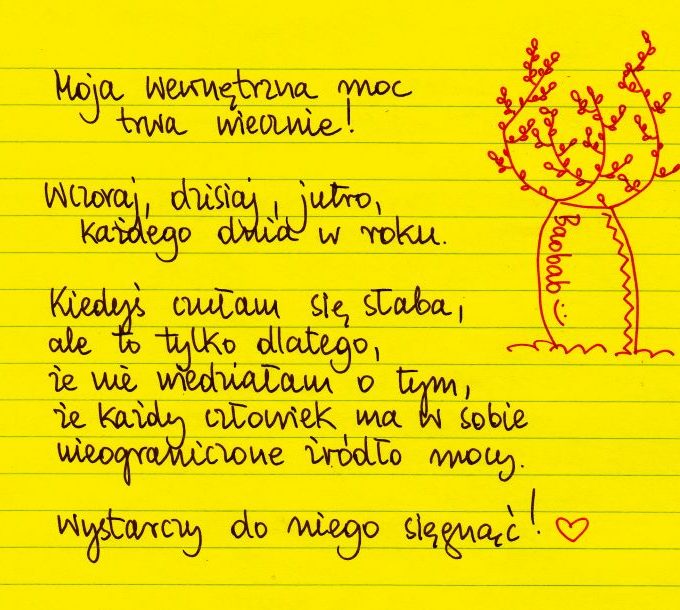 Moja wewnętrzna moc
trwa wiecznie!
Wczoraj, dzisiaj, jutro,
każdego dnia w roku.
Kiedyś czułam się słaba,
ale to tylko dlatego,
że nie wiedziałam o tym,
że każdy człowiek ma w sobie
nieograniczone źródło mocy.
Wystarczy do niego sięgnąć!
Baobab :)